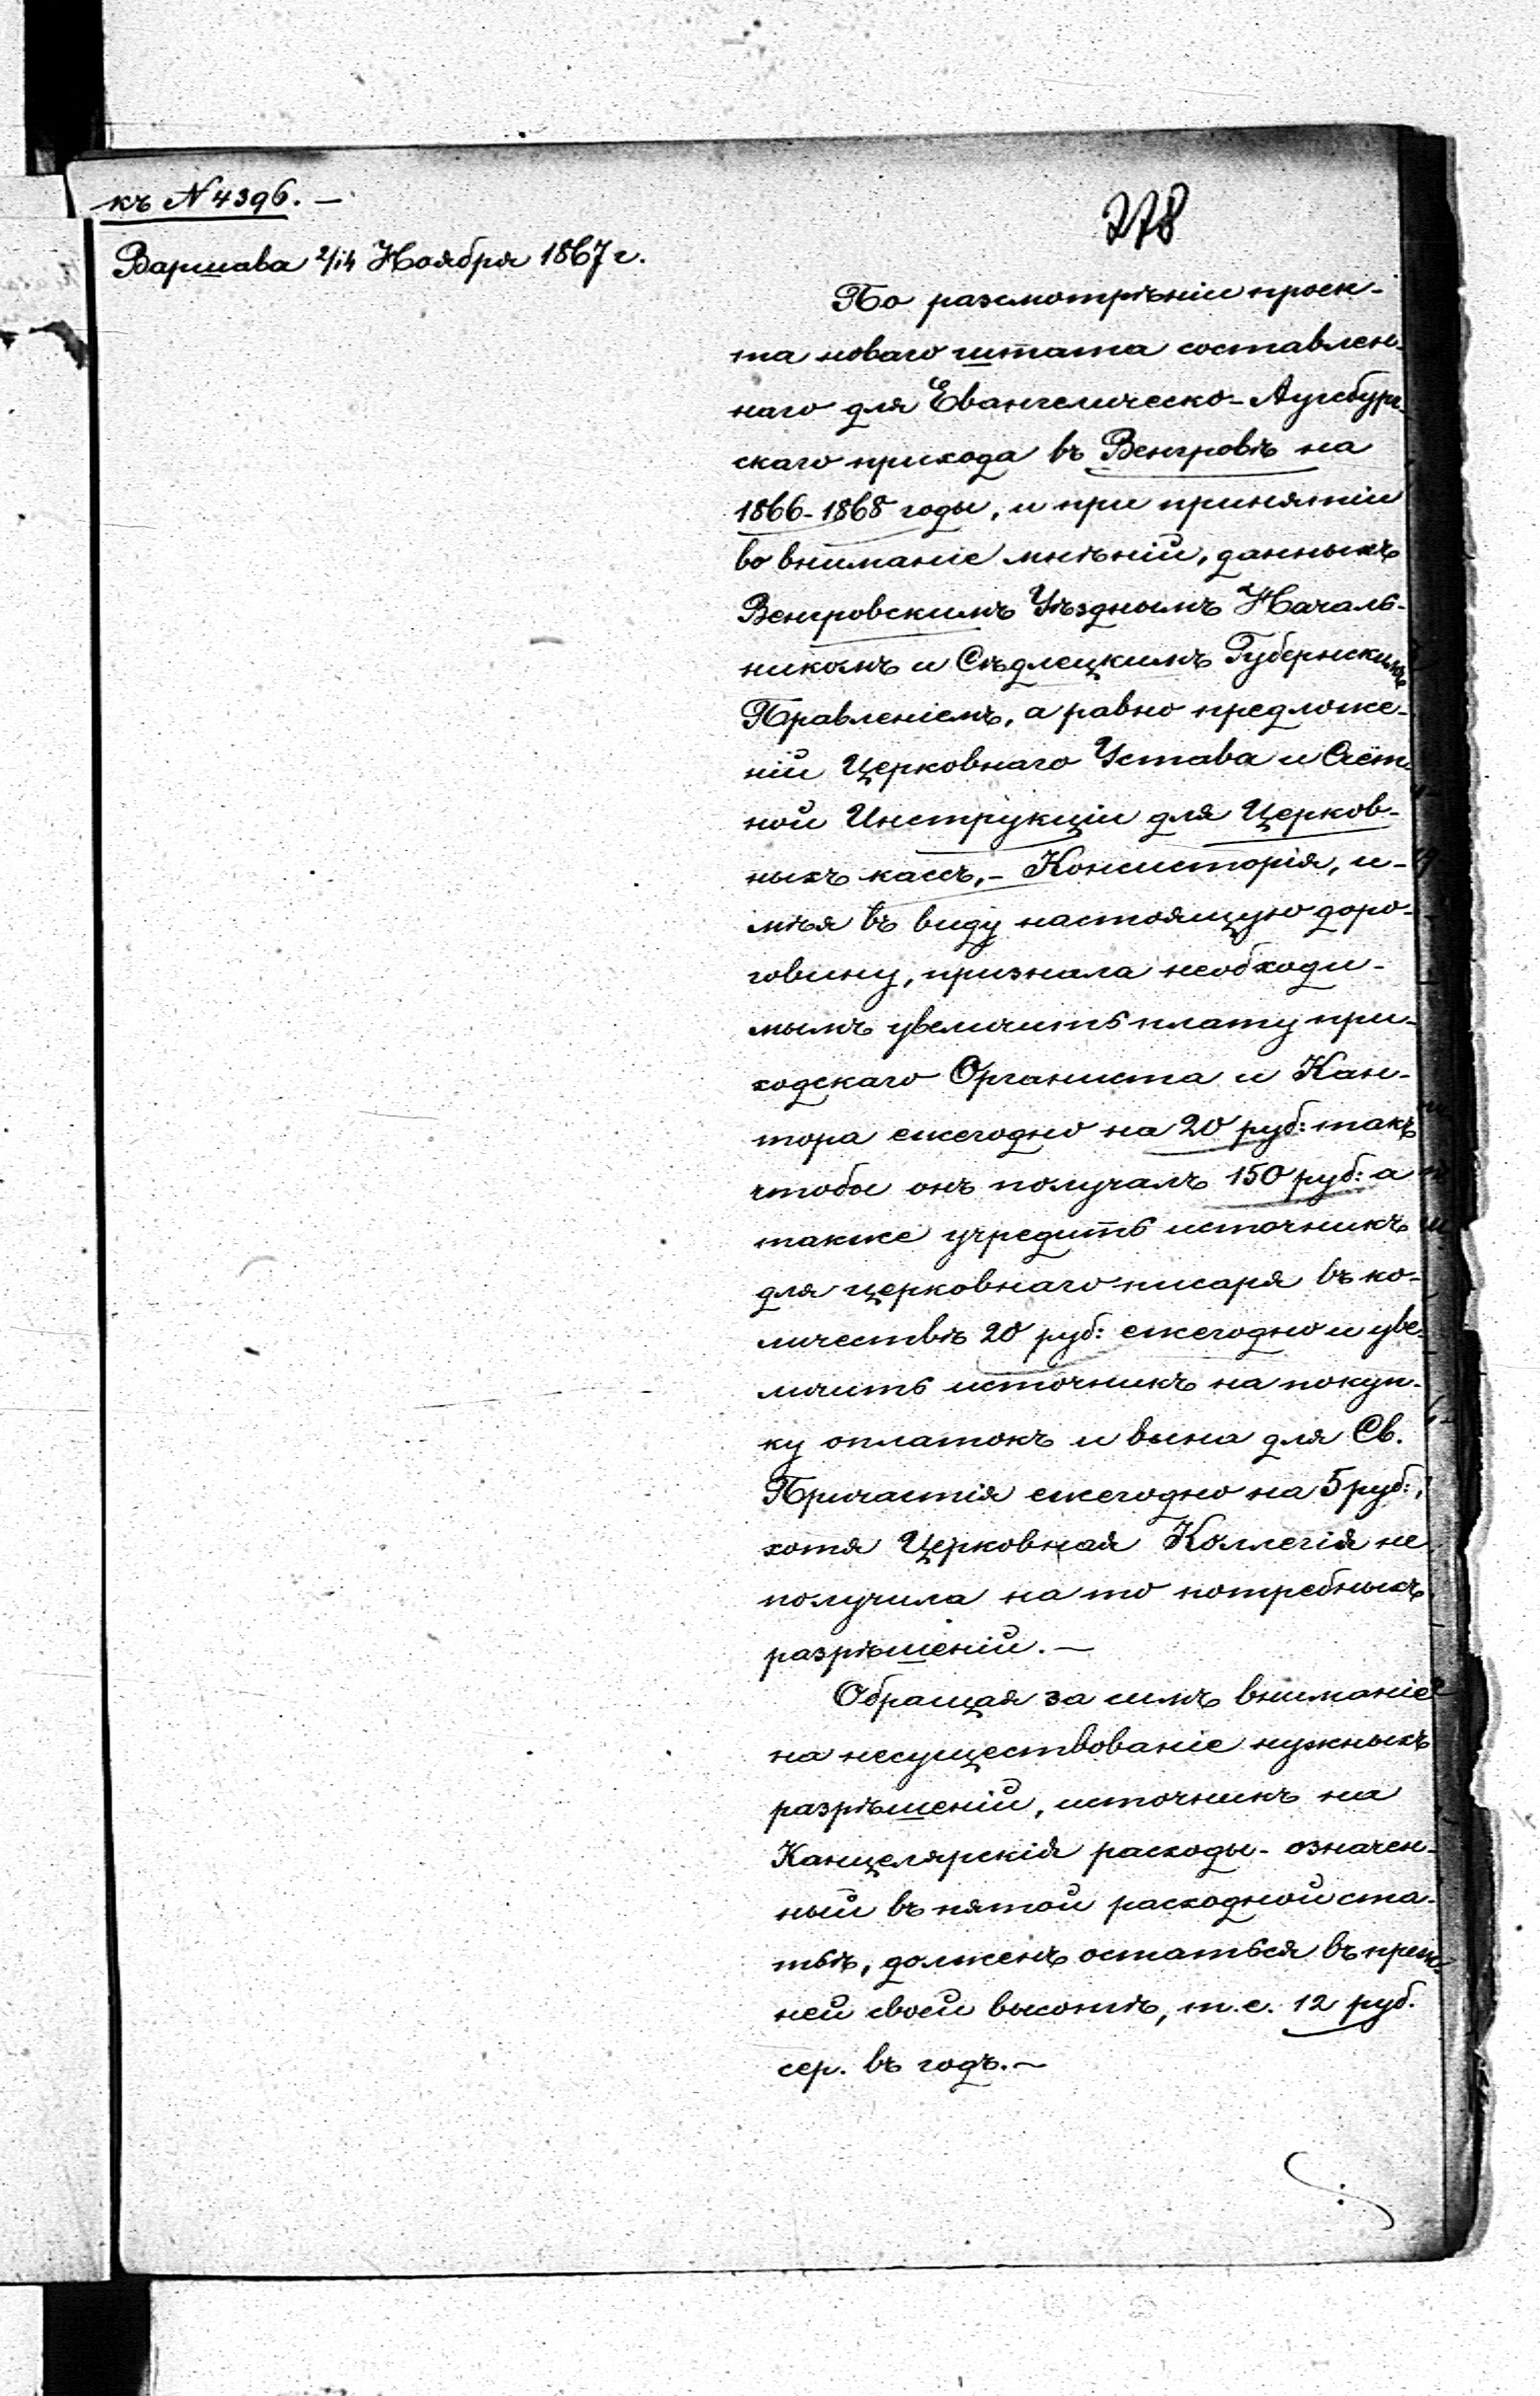 къ N 4396. —
278
Варшава 2/14 Ноября 1867 г.
По разсмотрѣніи проек-
та новаго штата составлен-
наго для Евангелическо-Аугсбург-
скаго прихода въ Венгровѣ на
1866-1868 годы, и при принятіи
во вниманіе мнѣній, данныхъ
Венгровскимъ Уѣзднымъ Началь-
никомъ и Сѣдлецкимъ Губернскимъ
Правленіемъ, а равно предложе-
ній Церковнаго Устава и Счёт-
ной Инструкціи для Церков-
ныхъ кассъ,- Консисторія, и-
мѣя въ виду настоящую доро-
говину, признала необходи-
мымъ увеличить плату при-
ходскаго Органиста и Кан-
тора ежегодно на 20 руб: такъ
чтобы онъ получалъ 150 руб: а
также учредить источникъ
для церковнаго писаря въ ко-
личествѣ 20 руб: ежегодно и уве-
личить источникъ на покуп-
ку оплатокъ и вина для Св.
Причастія ежегодно на 5 руб:,
хотя Церковная Коллегія не
получила на то потребныхъ
разрѣшеній. —
Обращая за симъ вниманіе
на несуществованіе нужныхъ
разрѣшеній, источникъ на
Канцелярскія расходы - означен-
ный въ пятой расходной ста-
тьѣ, долженъ остаться въ преж-
ней своей высотѣ, т.е. 12 руб.
сер. въ годъ. —